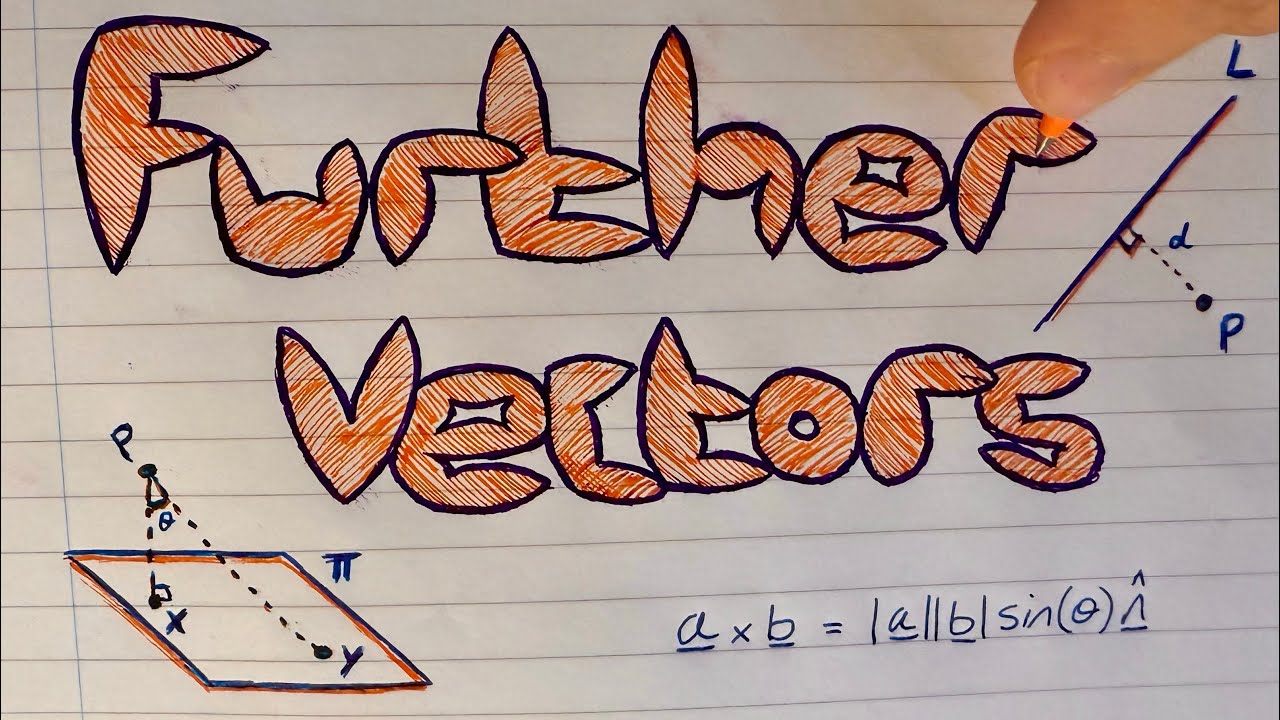 Further
L
d
P
Vectors
P
θ
π
X
y
a × b = |a||b| sin(θ) n̂